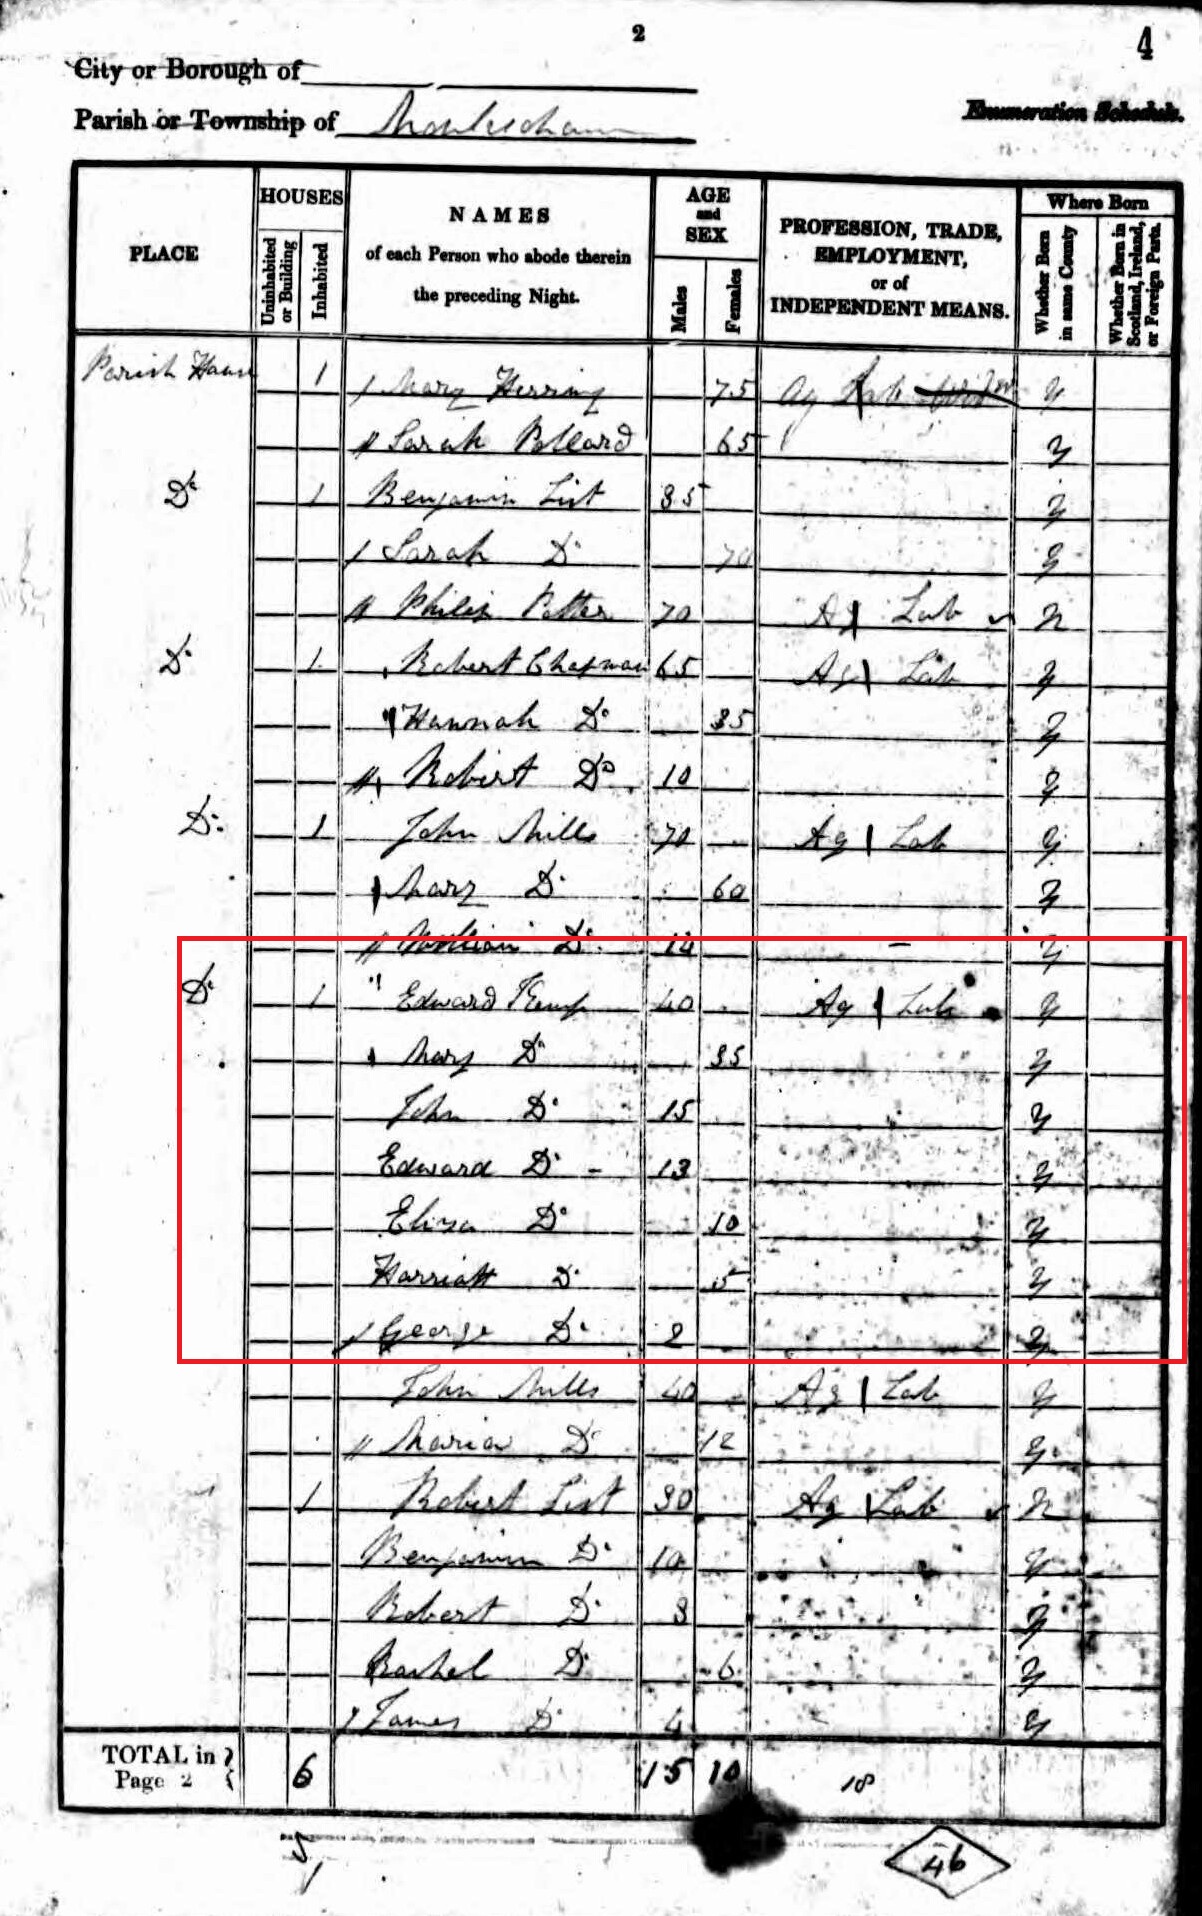 2
4
City or Borough of
Parish or Township of Monks
Enumeration Schedule.
PLACE
HOUSES
Uninhabited or Building
Inhabited
NAMES
of each Person who abode therein
the preceding Night.
AGE and SEX
Males
Females
PROFESSION, TRADE,
EMPLOYMENT,
or of
INDEPENDENT MEANS.
Where Born
Whether Born in same County
Whether Born in Scotland, Ireland, or Foreign Parts.
Parish House 1 Mary Herring 75 Ag y
Sarah Pollard 65 y
Do 1 Benjamin List 85 y
Sarah Do 70 y
Philip Potter 70 Ag Lab n
Do 1 Robert Chapman 65 Ag Lab y
Hannah Do 35 y
Robert Do 10 y
Do 1 John Mills 70 Ag Lab y
Mary Do 60 y
William Do 14 - y
Do 1 Edward Kemp 40 Ag Lab y
Mary Do 35 y
John Do 15 y
Edward Do - 13 y
Eliza Do 10 y
Harriatt Do 5 y
George Do 2 y
John Mills 40 Ag Lab y
Maria Do 12 y
1 Robert List 30 Ag Lab n
Benjamin Do 10 y
Robert Do 8 y
Rachel Do 6 y
James Do 4 y
TOTAL in Page 2 6 15 10 18
46